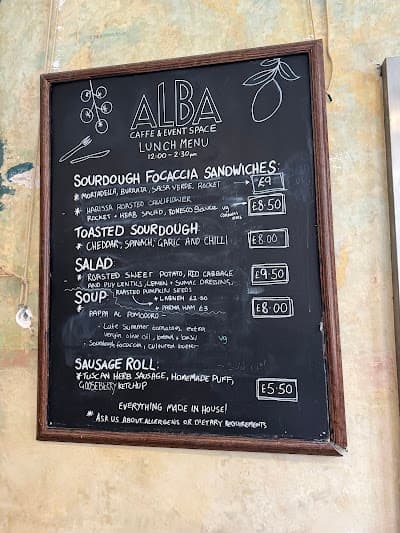 ALBA
CAFFE & EVENT SPACE
LUNCH MENU
12:00 - 2:30pm
SOURDOUGH FOCACCIA SANDWICHES:
* MORTADELLA, BURRATA, SALSA VERDE, ROCKET → £9
* HARISSA ROASTED CAULIFLOWER
ROCKET + HERB SALAD, ROMESCO vg £8.50
TOASTED SOURDOUGH
* CHEDDAR, SPINACH, GARLIC AND CHILLI £8.00
SALAD
* ROASTED SWEET POTATO, RED CABBAGE
AND PUY LENTILS, LEMON + SUMAC DRESSING, £9.50
ROASTED PUMPKIN SEEDS
+ LABNEH £2.50
+ PARMA HAM £3
SOUP
* PAPPA AL POMODORO - £8.00
- Late Summer tomatoes, extra
virgin olive oil, bread & basil vg
- Sourdough focaccia, cultured butter
SAUSAGE ROLL:
* TUSCAN HERB SAUSAGE, HOMEMADE PUFF,
GOOSEBERRY KETCHUP £5.50
EVERYTHING MADE IN HOUSE!
* ASK US ABOUT ALLERGENS OR DIETARY REQUIREMENTS